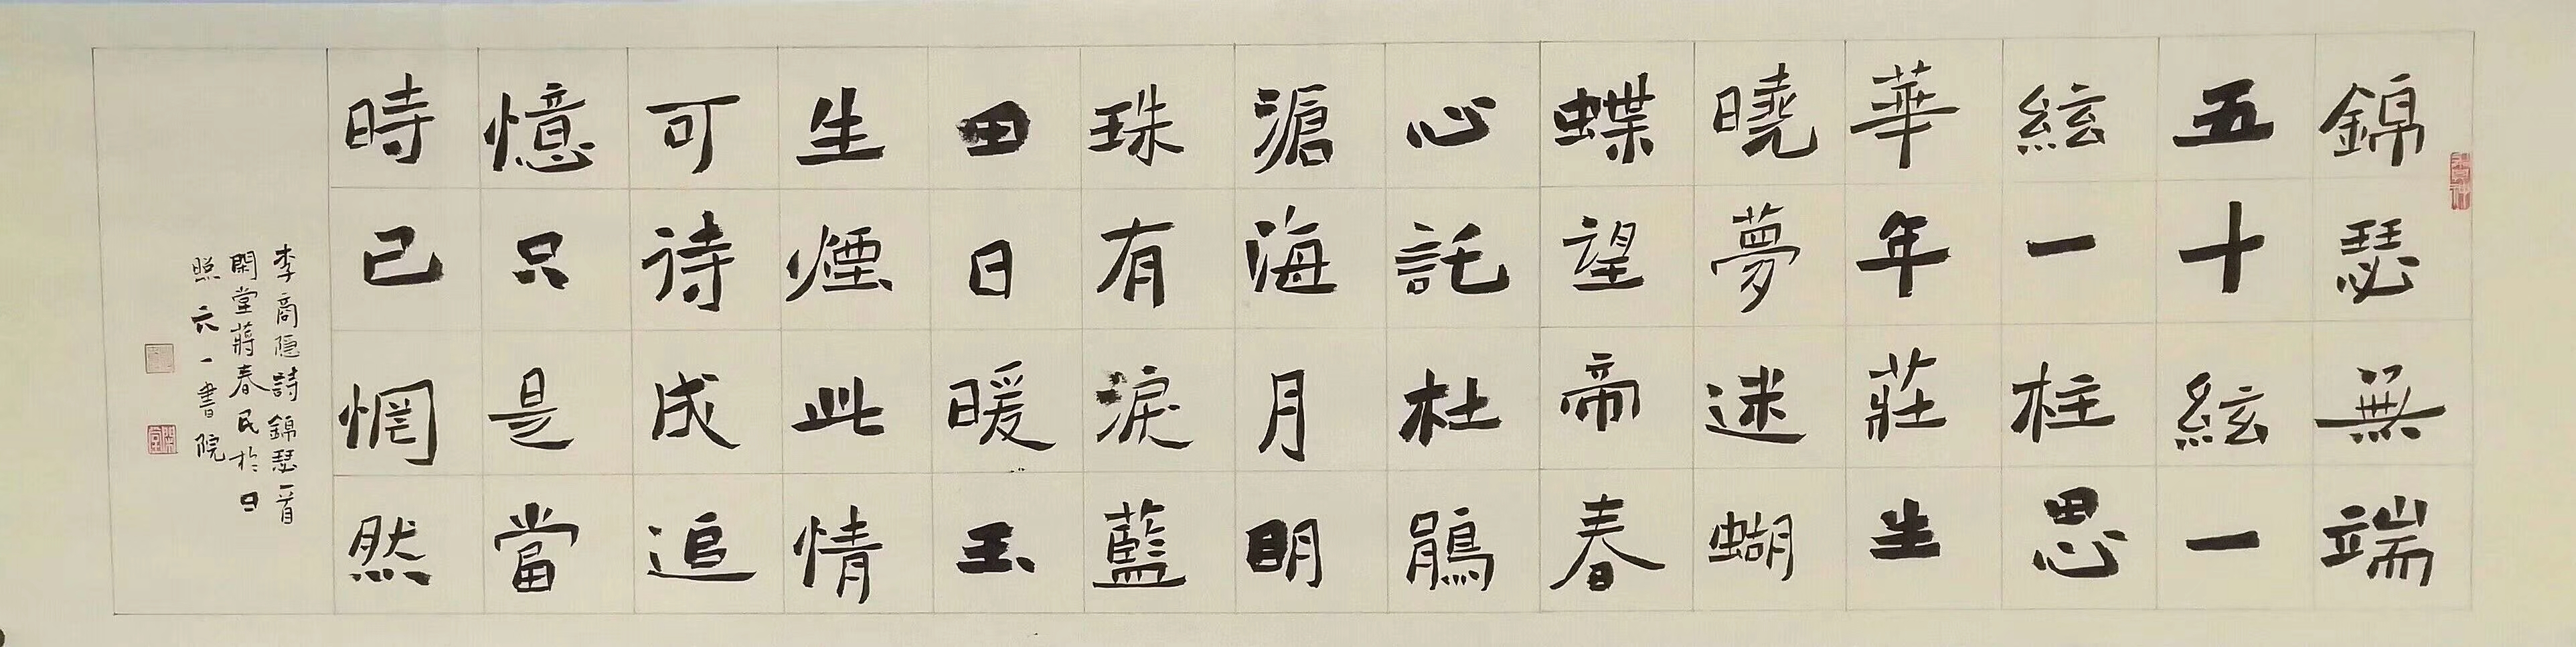 錦瑟無端
五十絃一
絃一柱思
華年莊生
曉夢迷蝴
蝶望帝春
心託杜鵑
滄海月明
珠有淚藍
田日暖玉
生煙此情
可待成追
憶只是當
時已惘然
李商隱詩錦瑟一首
閑堂蔣春民於日
照六一書院